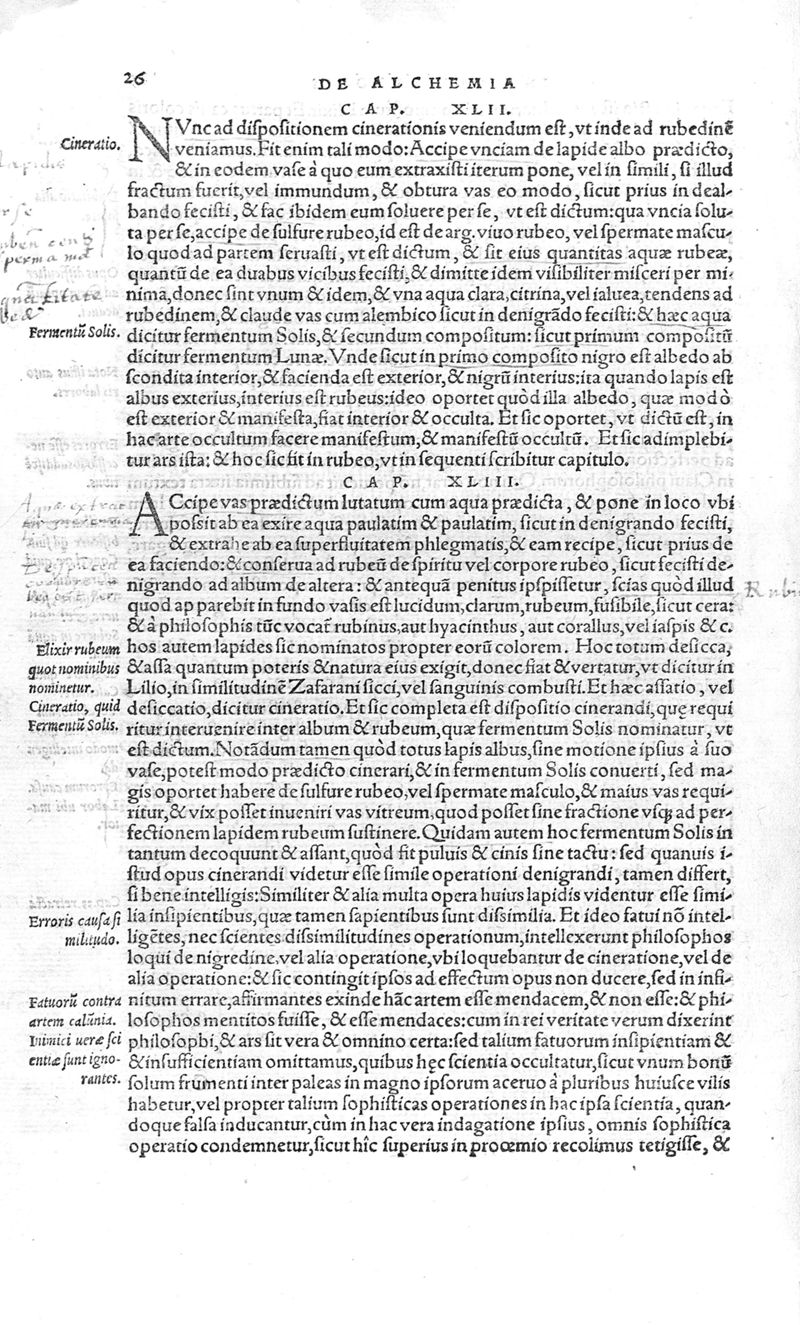 26
DE ALCHEMIA
CAP. XLII.
Cineratio.
NVnc ad dispositionem cinerationis veniendum est, vt inde ad rubedinẽ
veniamus. Fit enim tali modo: Accipe vnciam de lapide albo prædicto,
& in eodem vase à quo eum extraxisti iterum pone, vel in simili, si illud
fractum fuerit, vel immundum, & obtura vas eo modo, sicut prius in deal-
bando fecisti, & fac ibidem eum soluere per se, vt est dictum: qua vncia solu-
ta per se, accipe de sulfure rubeo, id est de arg. viuo rubeo, vel spermate mascu-
lo quod ad partem seruasti, vt est dictum, & sit eius quantitas aquæ rubeæ,
quantũ de ea duabus vicibus fecisti, & dimitte idem visibiliter misceri per mi-
nima, donec sint vnum & idem, & vna aqua clara, citrina, vel ialuea, tendens ad
rubedinem, & claude vas cum alembico sicut in denigrãdo fecisti: & hæc aqua
Fermentũ Solis.
dicitur fermentum Solis, & secundum compositum: sicut primum compositũ
dicitur fermentum Lunæ. Vnde sicut in primo composito nigro est albedo ab
scondita interior, & facienda est exterior, & nigrũ interius: ita quando lapis est
albus exterius, interius est rubeus: ideo oportet quòd illa albedo, quæ modò
est exterior & manifesta, fiat interior & occulta. Et sic oportet, vt dictũ est, in
hac arte occultum facere manifestum, & manifestũ occultũ. Et sic adimplebi-
tur ars ista: & hoc sic fit in rubeo, vt in sequenti scribitur capitulo.
CAP. XLIII.
ACcipe vas prædictum lutatum cum aqua prædicta, & pone in loco vbi
possit ab ea exire aqua paulatim & paulatim, sicut in denigrando fecisti,
& extrahe ab ea superfluitatem phlegmatis, & eam recipe, sicut prius de
ea faciendo: & conserua ad rubeũ de spiritu vel corpore rubeo, sicut fecisti de-
nigrando ad album de altera: & antequã penitus ipspissetur, scias quòd illud
quod apparebit in fundo vasis est lucidum, clarum, rubeum, fusibile, sicut cera:
& à philosophis tũc vocat̃ rubinus, aut hyacinthus, aut corallus, vel iaspis & c.
Elixir rubeum
quot nominibus
nominetur.
hos autem lapides sic nominatos propter eorũ colorem. Hoc totum desicca,
& assa quantum poteris & natura eius exigit, donec fiat & vertatur, vt dicitur in
Lilio, in similitudinẽ Zafarani sicci, vel sanguinis combusti. Et hæc assatio, vel
Cineratio, quid
Fermentũ Solis.
desiccatio, dicitur cineratio. Et sic completa est dispositio cinerandi, quę requi
ritur interuenire inter album & rubeum, quæ fermentum Solis nominatur, vt
est dictum. Notãdum tamen quòd totus lapis albus, sine motione ipsius à suo
vase, potest modo prædicto cinerari, & in fermentum Solis conuerti, sed ma-
gis oportet habere de sulfure rubeo, vel spermate masculo, & maius vas requi-
ritur, & vix posset inueniri vas vitreum, quod posset sine fractione vsq; ad per-
fectionem lapidem rubeum sustinere. Quidam autem hoc fermentum Solis in
tantum decoquunt & assant, quòd fit puluis & cinis sine tactu: sed quanuis i-
stud opus cinerandi videtur esse simile operationi denigrandi, tamen differt,
si bene intelligis: Similiter & alia multa opera huius lapidis videntur esse simi-
Erroris causa si
militudo.
lia insipientibus, quæ tamen sapientibus sunt dissimilia. Et ideo fatui nõ intel-
ligẽtes, nec scientes dissimilitudines operationum, intellexerunt philosophos
loqui de nigredine, vel alia operatione, vbi loquebantur de cineratione, vel de
alia operatione: & sic contingit ipsos ad effectum opus non ducere, sed in infi-
Fatuorũ contra
artem calũnia.
nitum errare, affirmantes exinde hãc artem esse mendacem, & non esse: & phi-
losophos mentitos fuisse, & esse mendaces: cum in rei veritate verum dixerint
Inimici ueræ sci
entiæ sunt igno-
rantes.
philosophi, & ars sit vera & omnino certa: sed talium fatuorum insipientiam &
& insufficientiam omittamus, quibus hęc scientia occultatur, sicut vnum bonũ
solum frumenti inter paleas in magno ipsorum aceruo à pluribus huiusce vilis
habetur, vel propter talium sophisticas operationes in hac ipsa scientia, quan-
doque falsa inducantur, cùm in hac vera indagatione ipsius, omnis sophistica
operatio condemnetur, sicut hîc superius in prooemio recolimus tetigisse, &